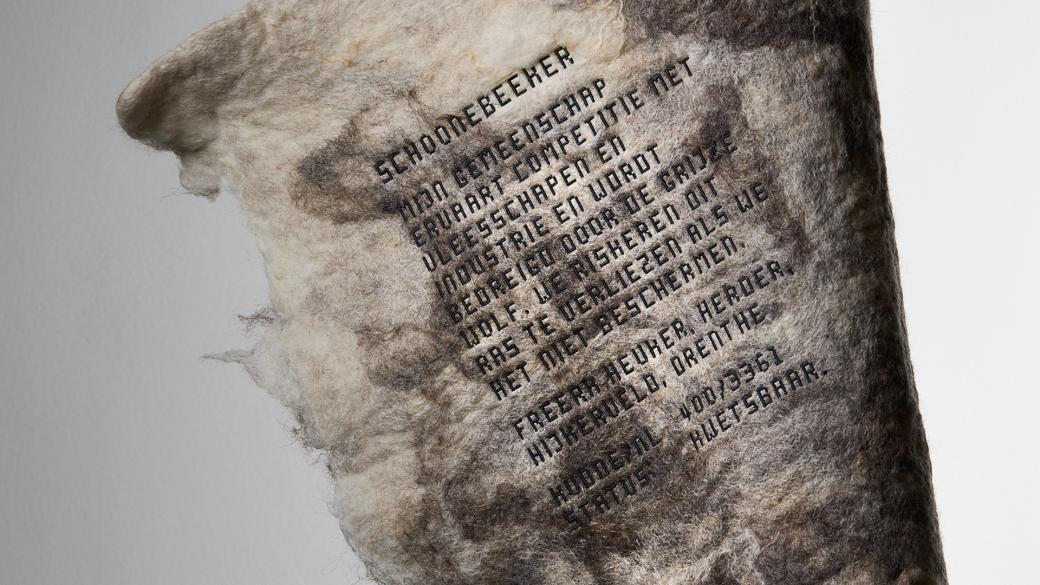 SCHOONEBEEKER
MIJN GEMEENSCHAP
ERVAART COMPETITIE MET
VLEESSCHAPEN EN
INDUSTRIE EN WORDT
BEDREIGD DOOR DE GRIJZE
WOLF. WE RISKEREN DIT
RAS TE VERLIEZEN ALS WE
HET NIET BESCHERMEN.
FREERK HEUKER, HERDER,
HIJKERVELD, DRENTHE
KUDDE/NL 400/3361
STATUS KWETSBAAR.